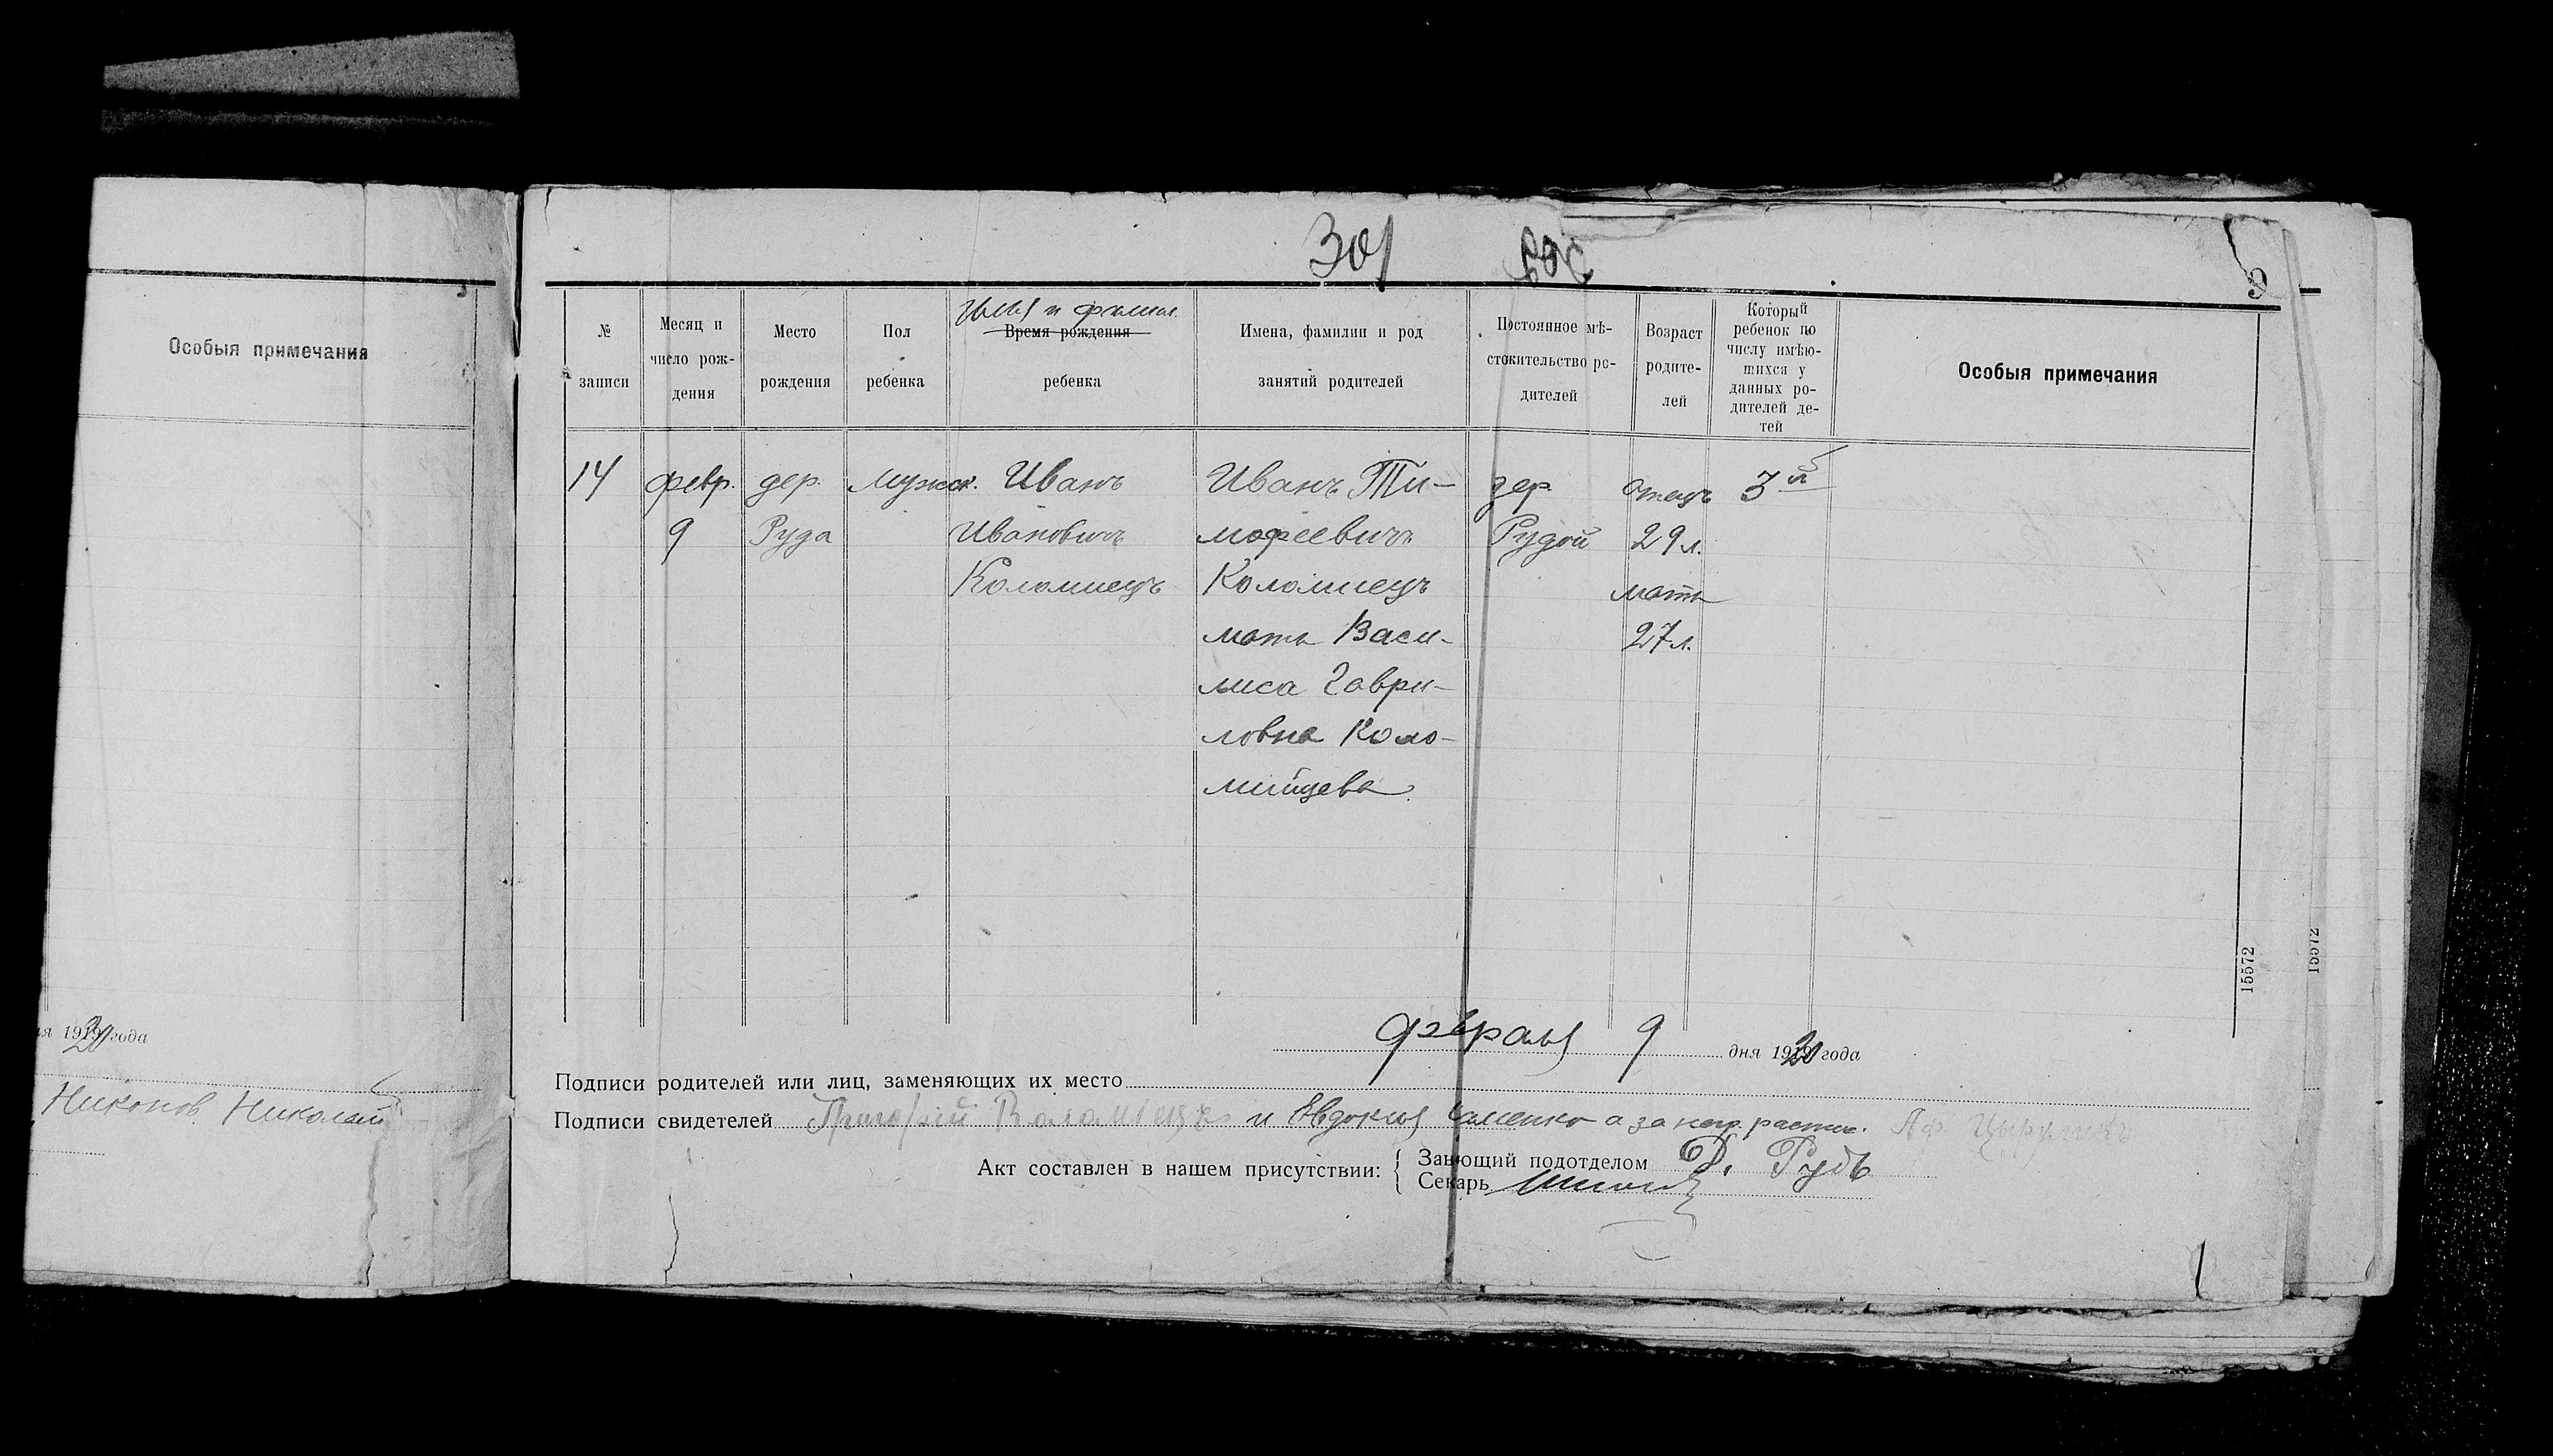 Особыя примечания
1920 года
Никонов Николай
301
9
№ записи
Месяц и число рождения
Место рождения
Пол ребенка
Имя и фамил.
Время рождения
ребенка
Имена, фамилии и род занятий родителей
Постоянное мѣстожительство родителей
Возраст родителей
Который ребенок по числу имѣющихся у данных родителей детей
Особыя примечания
14 февр. дер. мужск. Иванъ Иванъ Ти- дер. отецъ 3й
9 Руда Ивановичъ мофеевичъ Рудой 29 л.
Коломиецъ Коломиецъ мать
мать Васи- 27 л.
лиса Гаври-
ловна Коло-
мийцева
15572
15572
февраля 9 дня 1920 года
Подписи родителей или лиц, заменяющих их место
Подписи свидетелей Григорій Коломіецъ и Евдокия а за
Акт составлен в нашем присутствии:
Зав-ющий подотделом Рудь
Секарь